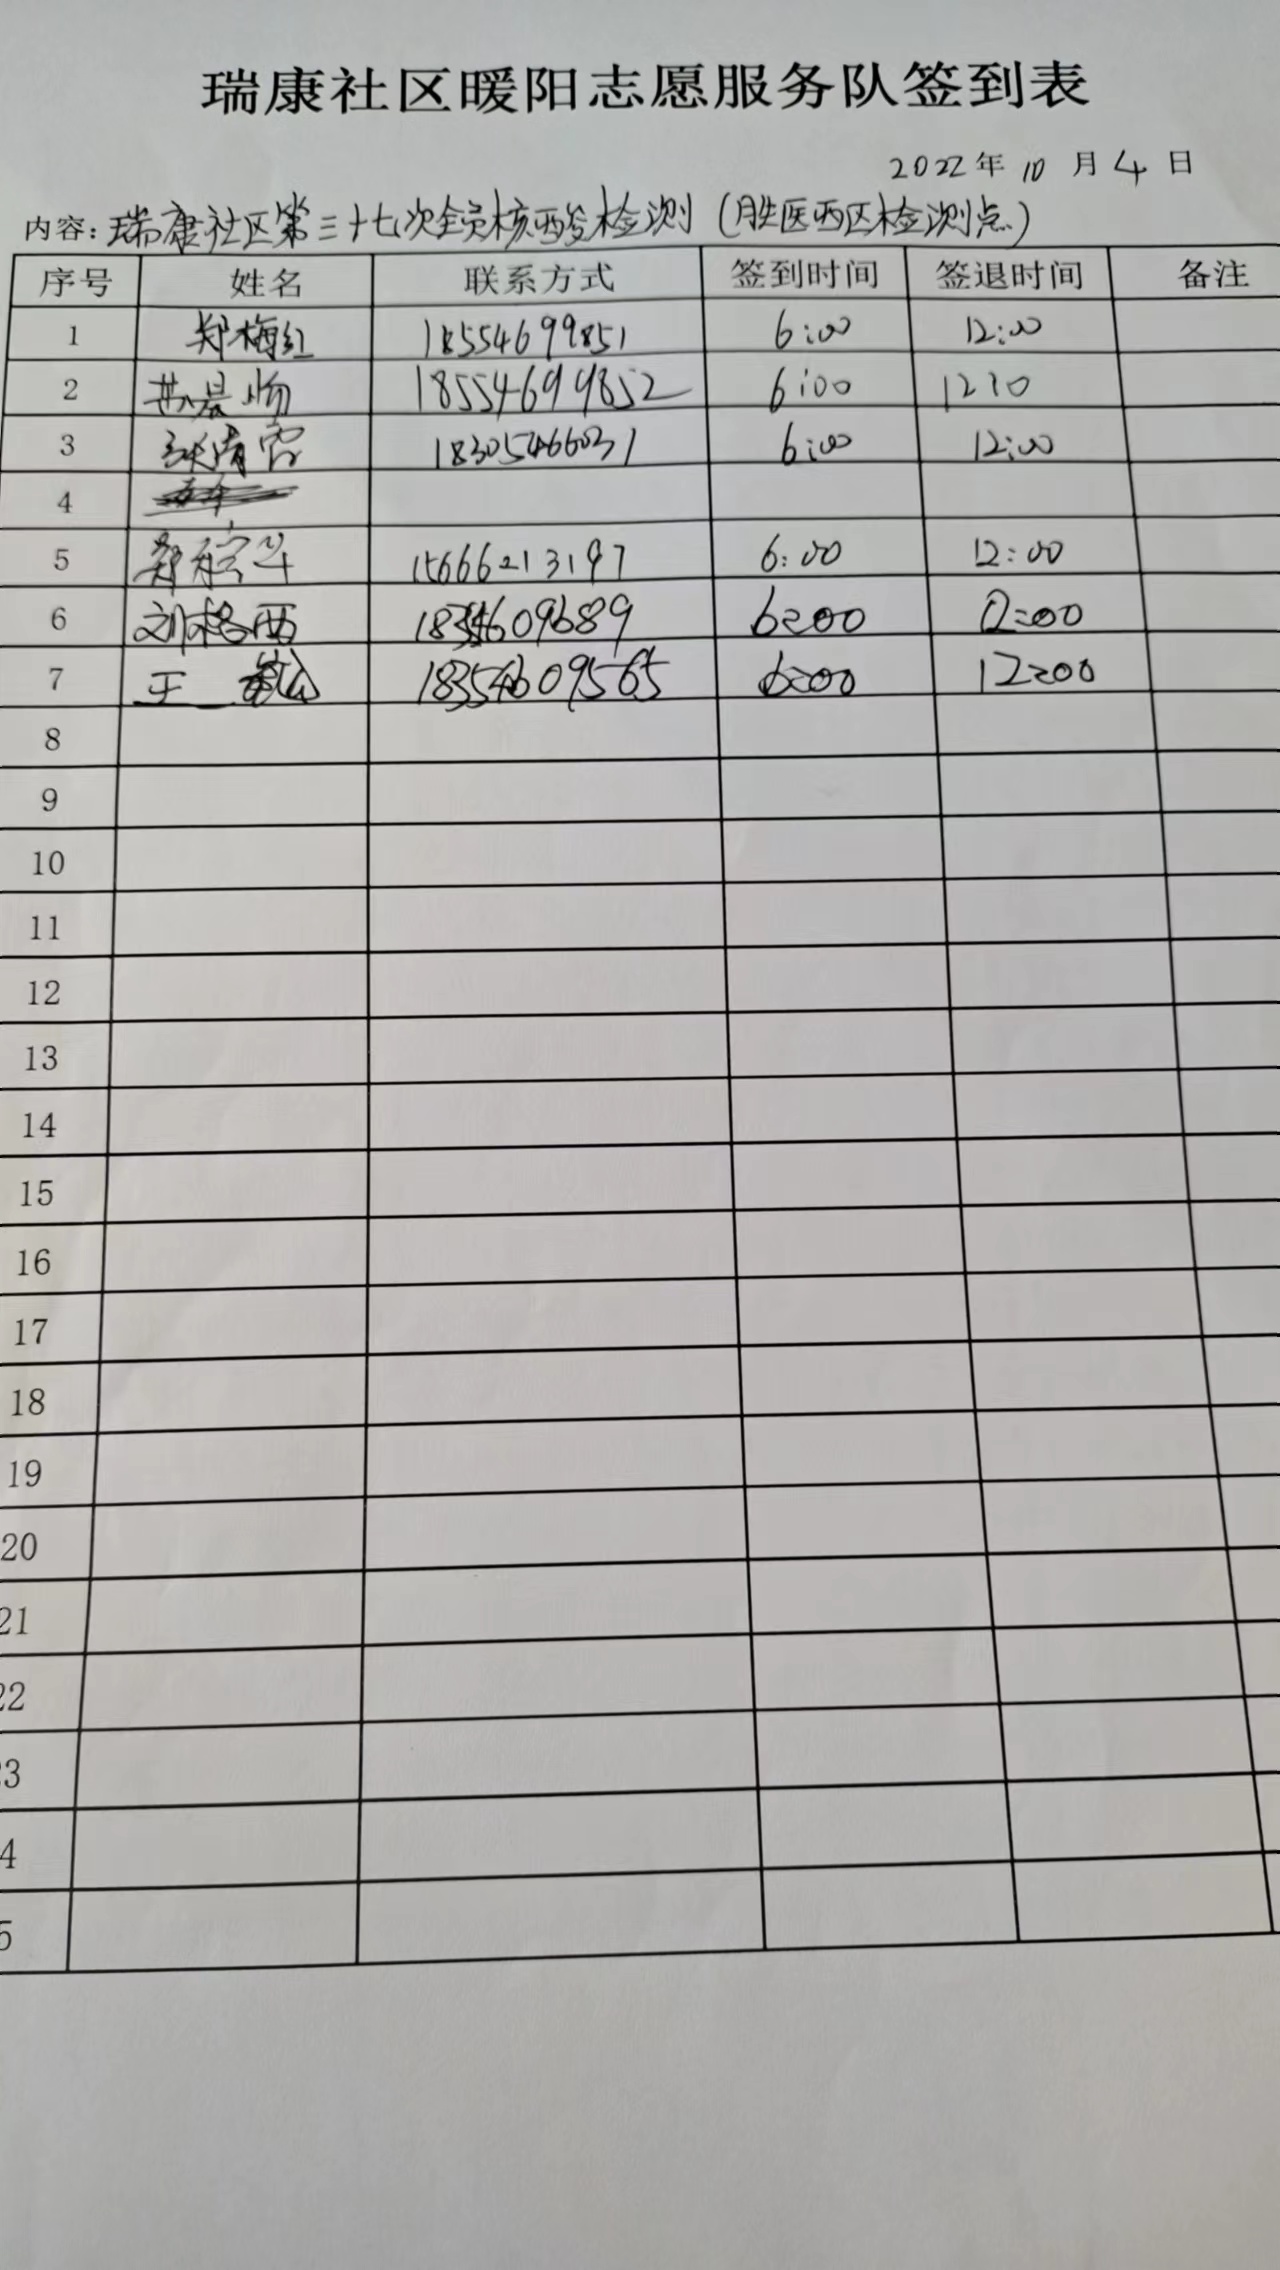 瑞康社区暖阳志愿服务队签到表
2022年 10 月 4 日
内容：瑞康社区第三十七次全员核酸检测（胜医西区检测点）
序号 姓名 联系方式 签到时间 签退时间 备注
1 郑梅红 18554699851 6:00 12:00
2 18554699852 6:00
3 18305466031 6:00 12:00
4
5 15666213197 6:00 12:00
6 刘格西 6:00 12:00
7 王 18354609565 6:00 12:00
8
9
10
11
12
13
14
15
16
17
18
19
20
21
22
23
4
5